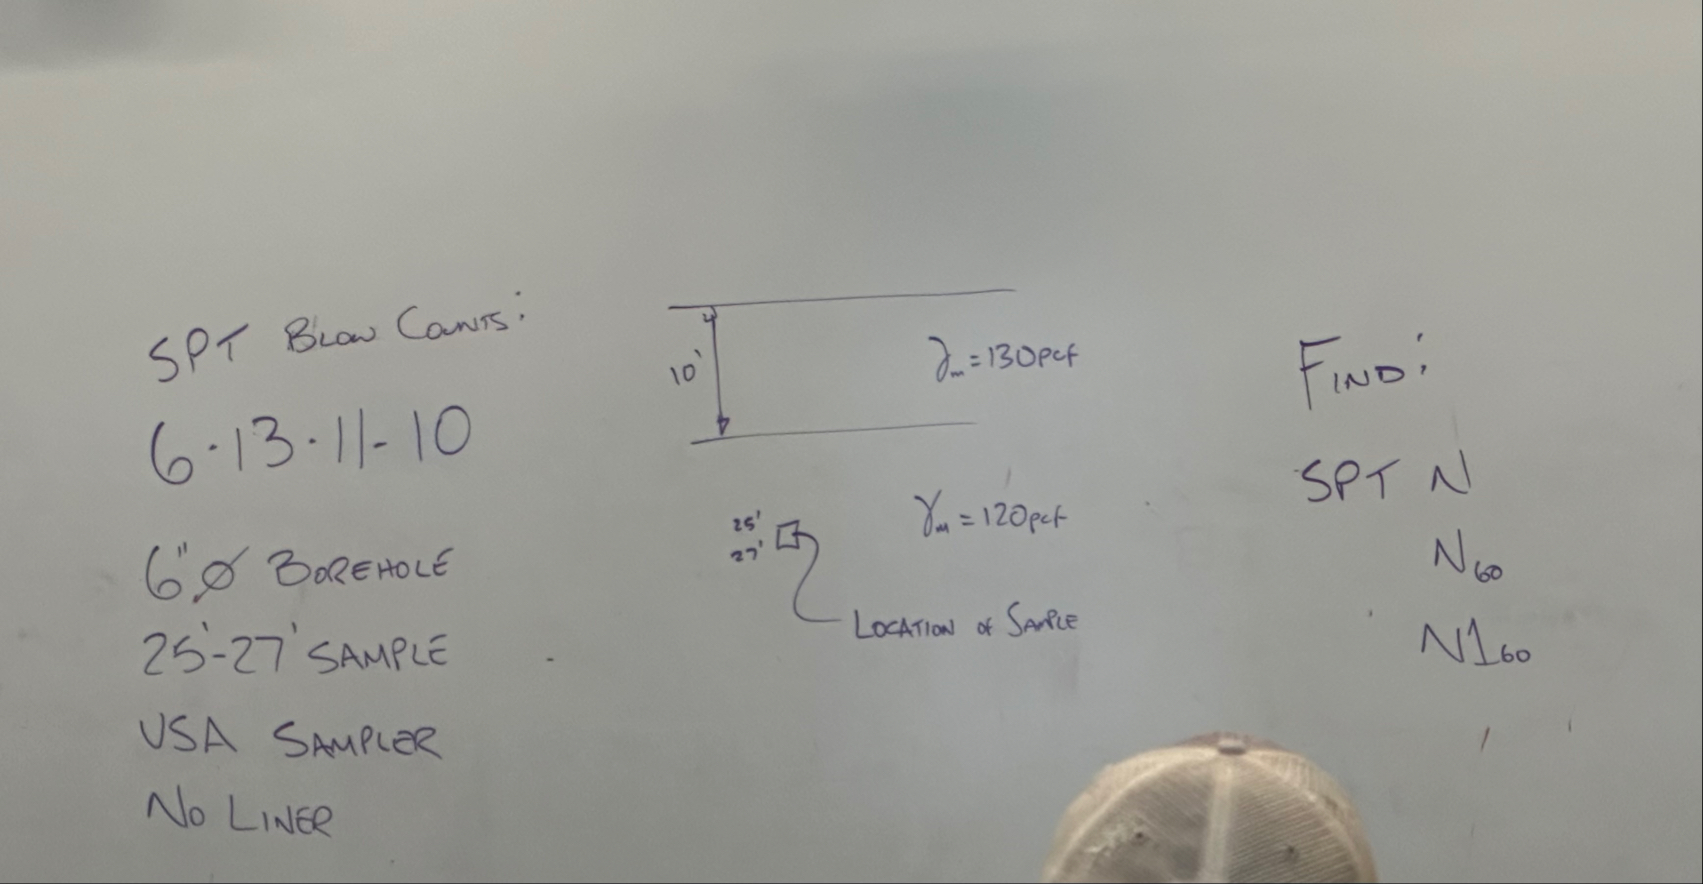 SPT BLOW COUNTS:
6-13-11-10
6"Ø BOREHOLE
25'-27' SAMPLE
USA SAMPLER
NO LINER
10'
γm=130pcf
25'
27'
γm=120pcf
LOCATION of SAMPLE
FIND:
SPT N
N60
N160